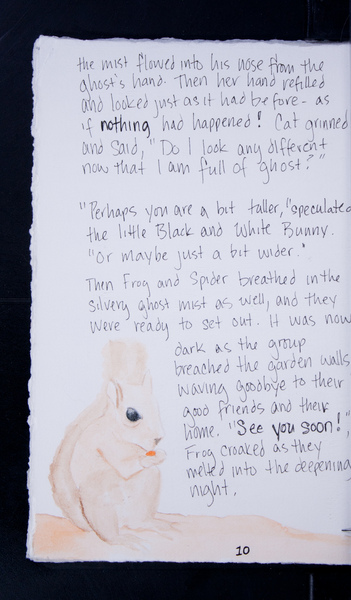 the mist flowed into his nose from the
ghost's hand. Then her hand refilled
and looked just as it had before - as
if nothing had happened! Cat grinned
and said, "Do I look any different
now that I am full of ghost?"
"Perhaps you are a bit taller," speculated
the little Black and White Bunny.
"Or maybe just a bit wider."
Then Frog and Spider breathed in the
silvery ghost mist as well, and they
were ready to set out. It was now
dark as the group
breached the garden walls
waving goodbye to their
good friends and their
home. "See you soon!",
Frog croaked as they
melted into the deepening
night.
10